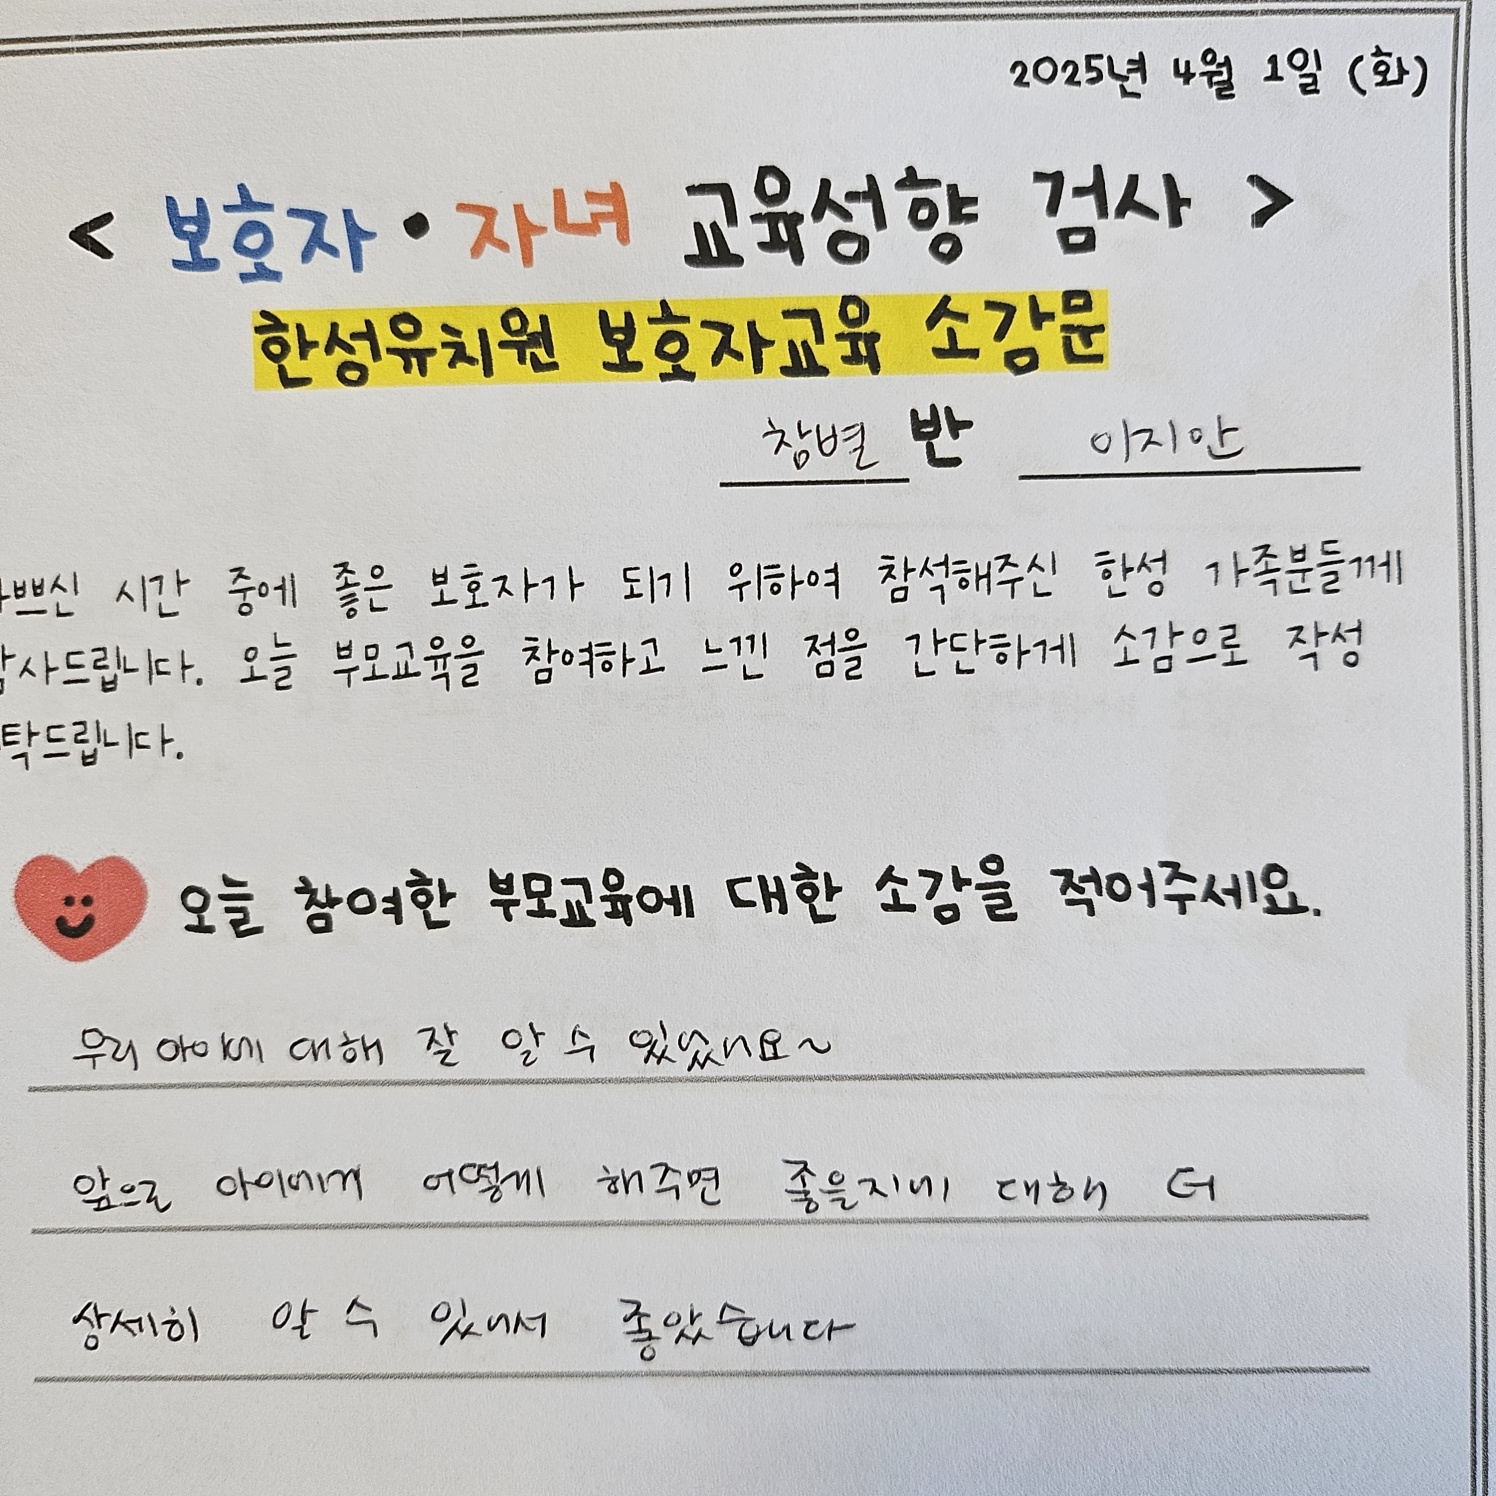 2025년 4월 1일 (화)
< 보호자·자녀 교육성향 검사 >
한성유치원 보호자교육 소감문
참별 반 이지안
쁘신 시간 중에 좋은 보호자가 되기 위하여 참석해주신 한성 가족분들께
사드립니다. 오늘 부모교육을 참여하고 느낀 점을 간단하게 소감으로 작성
탁드립니다.
오늘 참여한 부모교육에 대한 소감을 적어주세요.
우리 아이에 대해 잘 알 수 있었네요~
앞으로 아이에게 어떻게 해주면 좋을지에 대해 더
상세히 알 수 있어서 좋았습니다